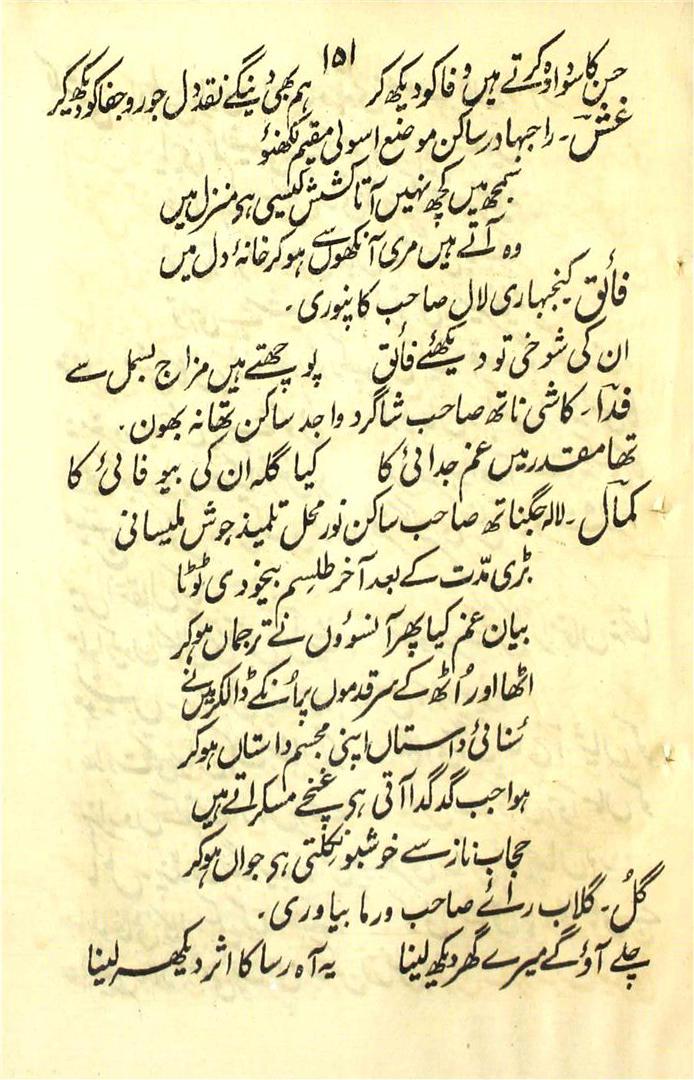 ۱۵۱
حسن کا سودا وہ کرتے ہیں وفا کو دیکھ کر ہم بھی دینگے نقد دل جور و جفا کو دیکھ کر
غش۔ راجبہادر ساکن موضع اسولی مقیم لکھنؤ
سمجھ میں کچھ نہیں آتا کشش کیسی ہی منزل میں
وہ آتے ہیں مری آنکھوں سے ہو کر خانۂ دل میں
فائق کنجبہاری لال صاحب کانپوری۔
ان کی شوخی تو دیکھئے فائق پوچھتے ہیں مزاج بسمل سے
فدا۔ کاشی ناتھ صاحب شاگرد واجد ساکن تھانہ بھون۔
تھا مقدر میں غم جدائی کا کیا گلہ ان کی بیوفائی کا
کمال۔ لالہ جگناتھ صاحب ساکن نور محل تلمیذ جوش ملیسانی
بڑی مدّت کے بعد آخر طلسِم بیخودی ٹوٹا
بیان غم کیا پھر آنسوؤں نے ترجماں ہو کر
اٹھا اور اُٹھ کے سر قدموں پر اُنکے ڈالکر میں نے
سُنائی داستاں اپنی مجسم داستاں ہو کر
ہوا جب گدگدا آتی ہی غنچے مسکراتے ہیں
حجاب ناز سے خوشبو نکلتی ہی جواں ہو کر
گلُ۔ گلاب رائے صاحب ورما بیاوری۔
چلے آؤ گے میرے گھر دیکھ لینا یہ آہ رسا کا اثر دیکھ لینا